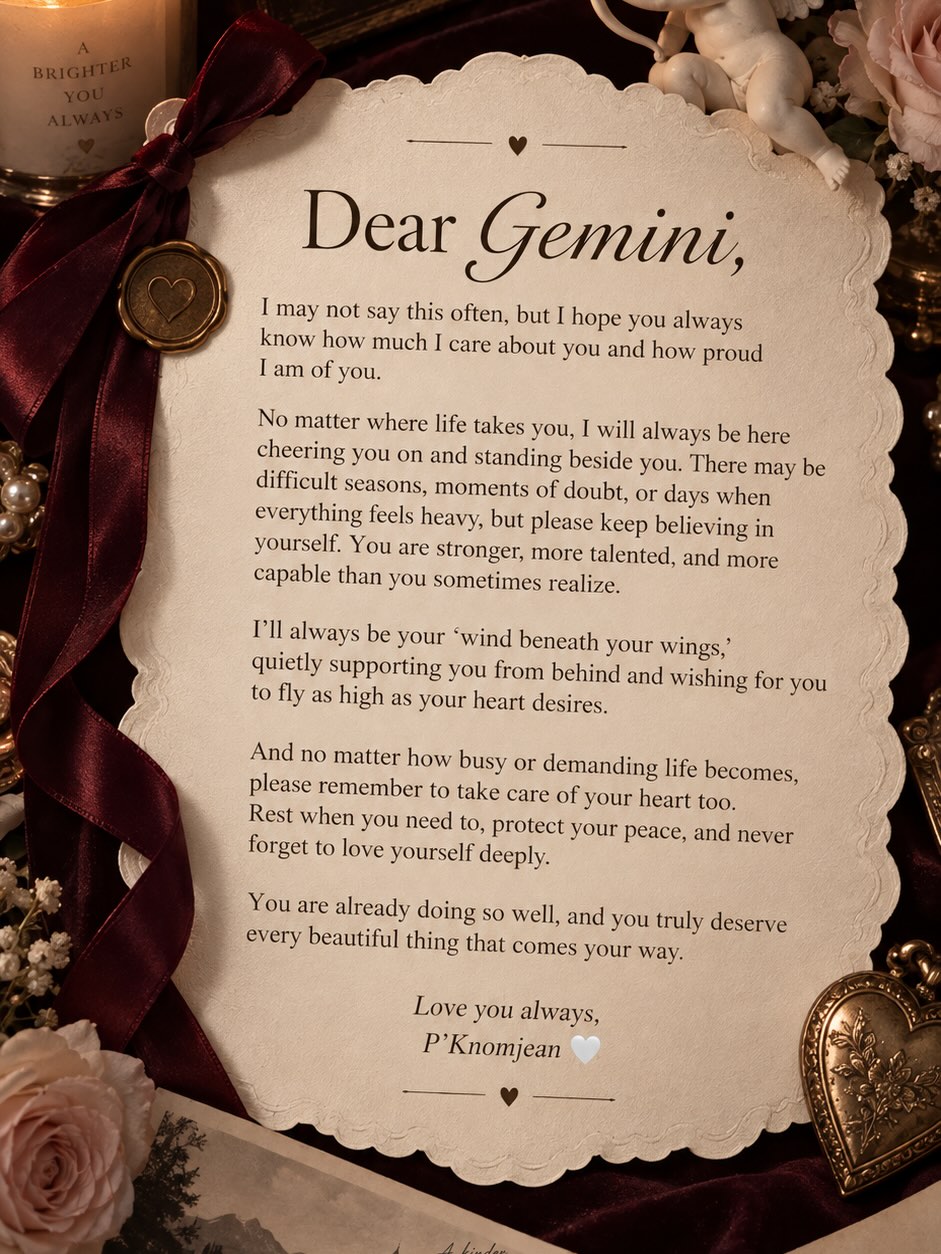 A
BRIGHTER
YOU
ALWAYS
Dear Gemini,
I may not say this often, but I hope you always
know how much I care about you and how proud
I am of you.
No matter where life takes you, I will always be here
cheering you on and standing beside you. There may be
difficult seasons, moments of doubt, or days when
everything feels heavy, but please keep believing in
yourself. You are stronger, more talented, and more
capable than you sometimes realize.
I’ll always be your ‘wind beneath your wings,’
quietly supporting you from behind and wishing for you
to fly as high as your heart desires.
And no matter how busy or demanding life becomes,
please remember to take care of your heart too.
Rest when you need to, protect your peace, and never
forget to love yourself deeply.
You are already doing so well, and you truly deserve
every beautiful thing that comes your way.
Love you always,
P’Knomjean 🤍
A kinder